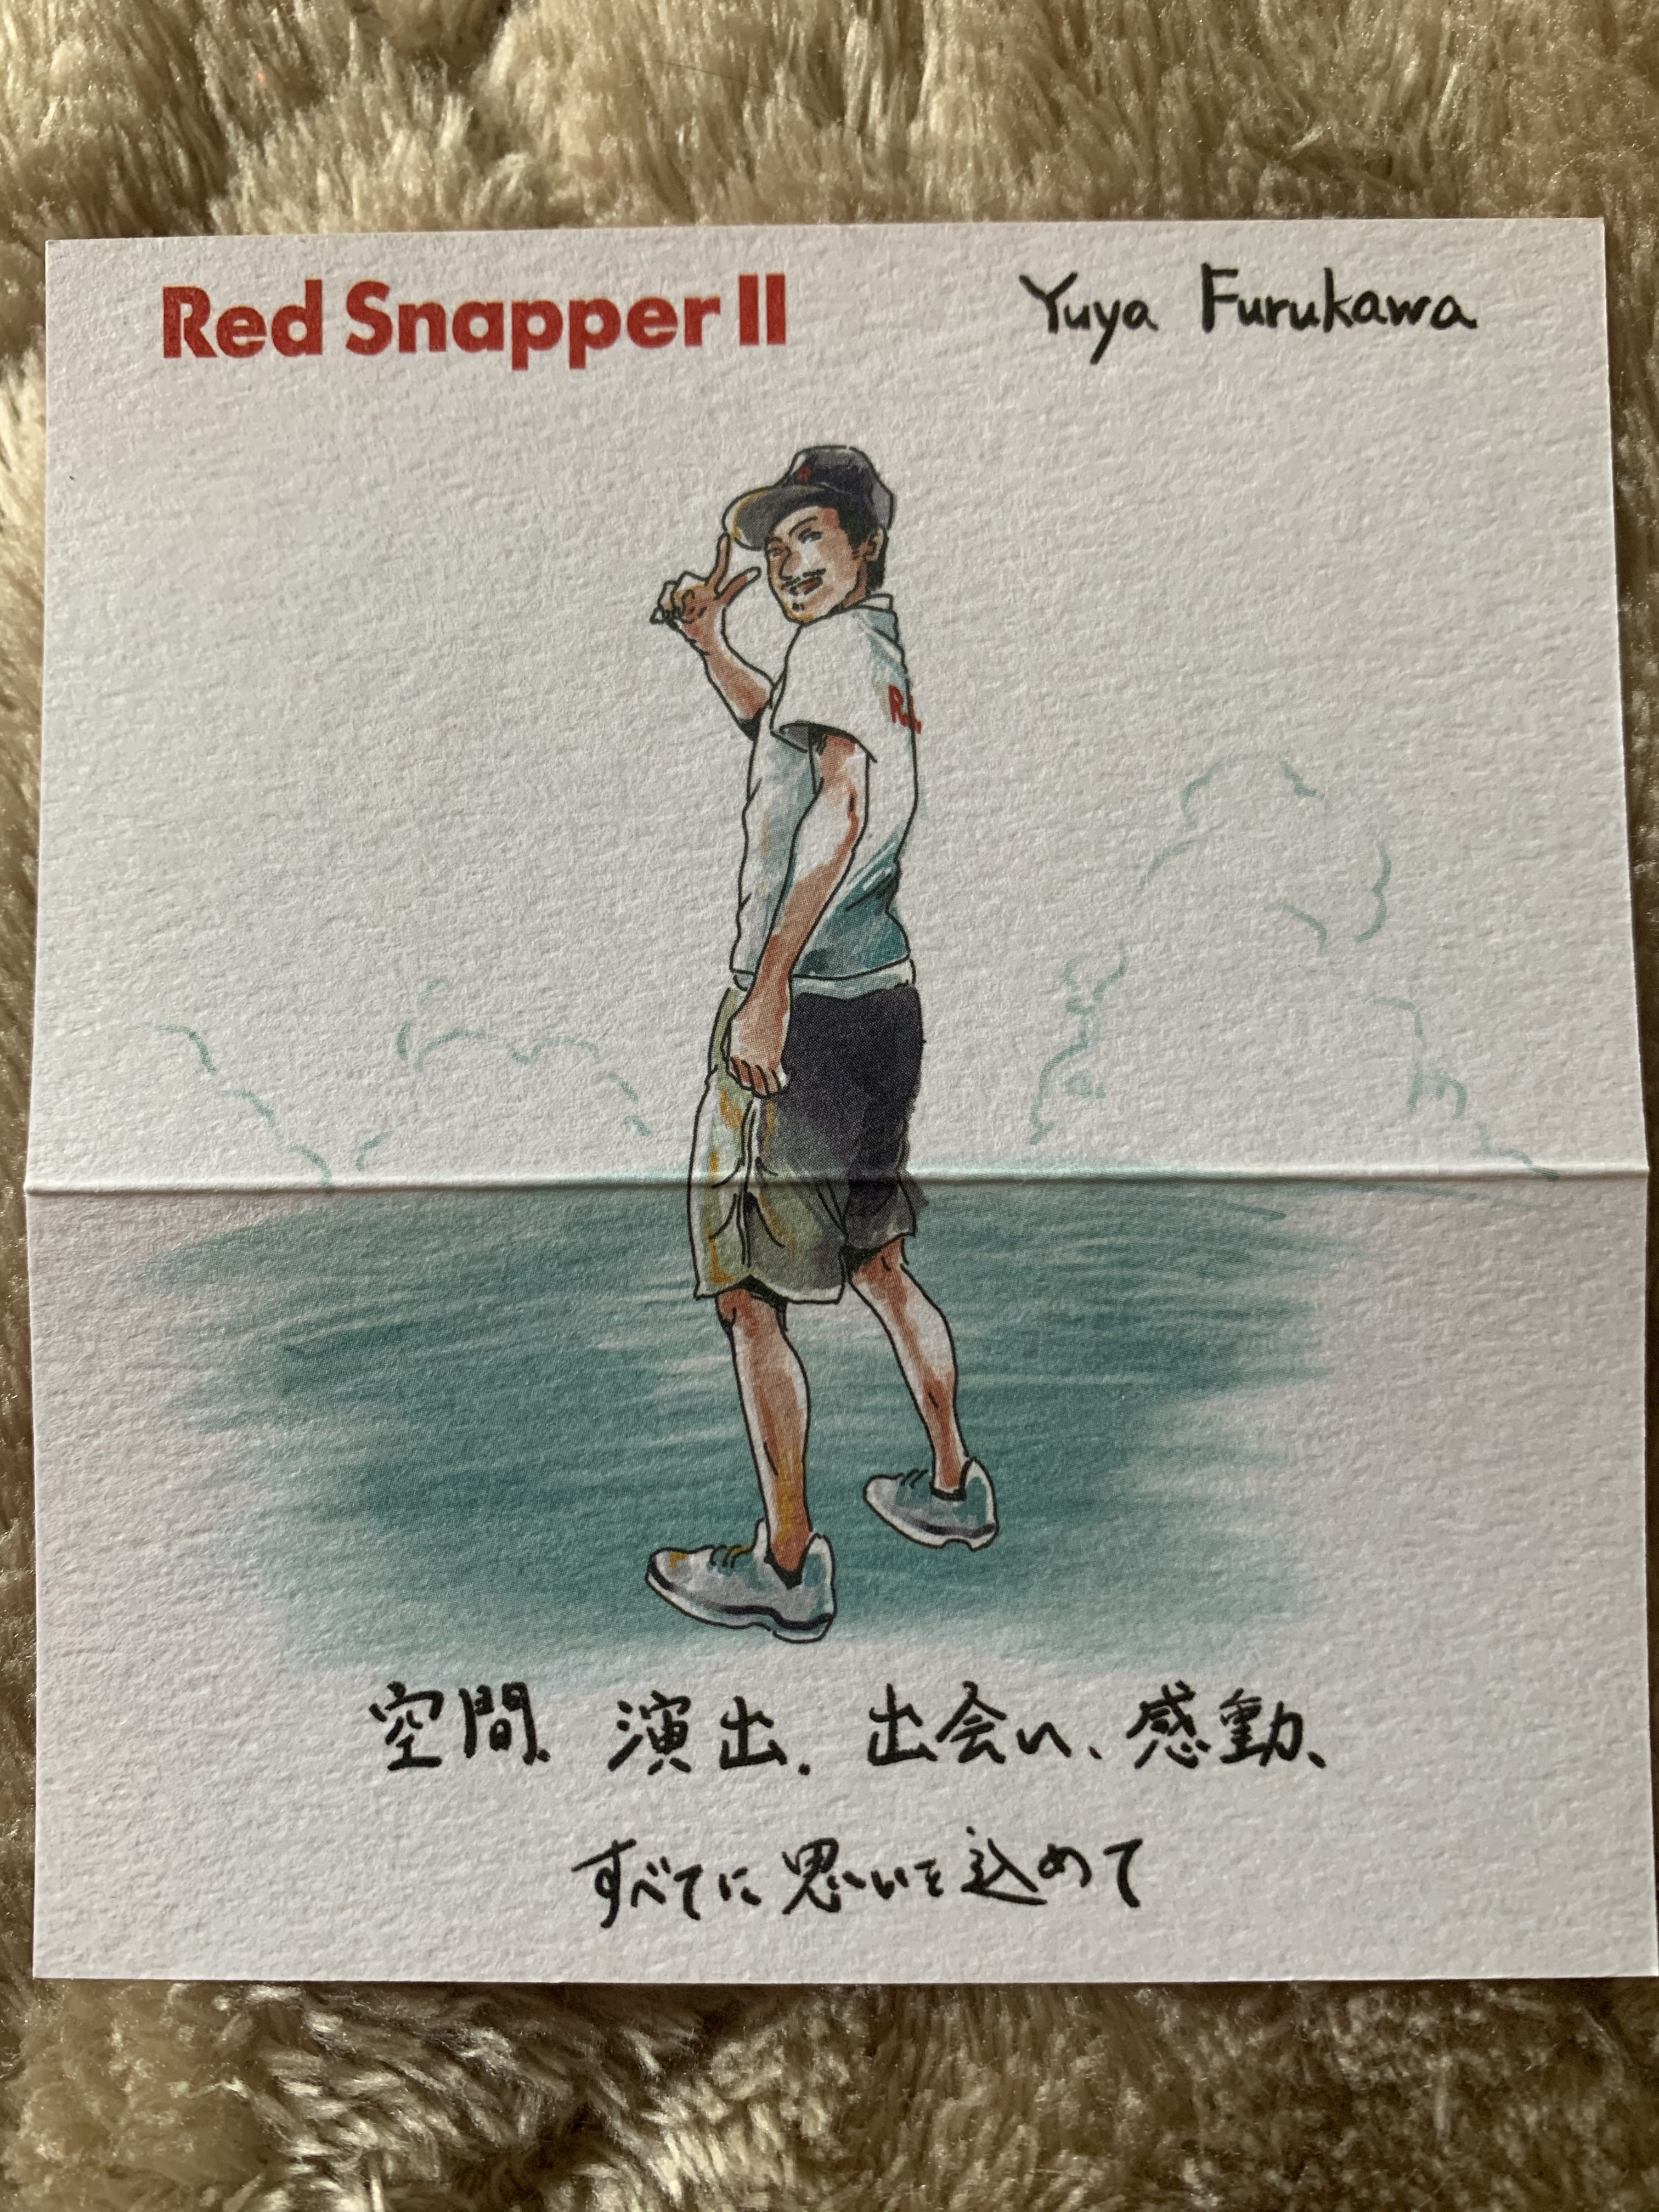 Red Snapper II
Yuya Furukawa
空間、演出、出会い、感動、
すべてに思いを込めて